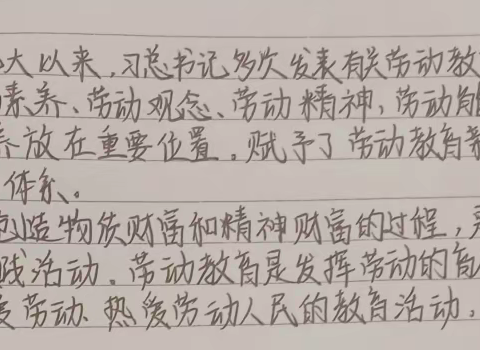 大以来,习总书记多次发表有关劳动教
素养、劳动观念、劳动精神,劳动能
养放在重要位置,赋予了劳动教育新
体系。
创造物质财富和精神财富的过程,
践活动。劳动教育是发挥劳动的育
劳动、热爱劳动人民的教育活动,